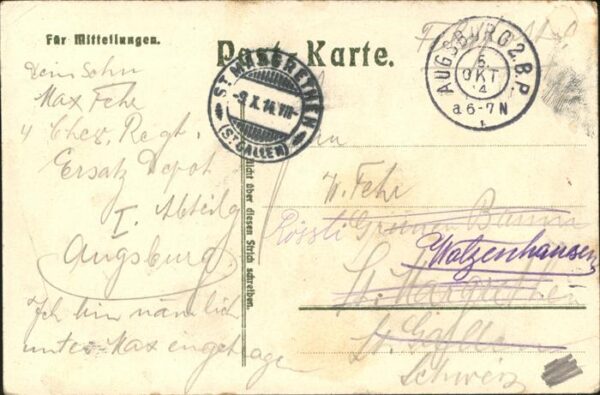 Für Mitteilungen.
Post-Karte.
Dein Sohn
Max Fehr
4 Chev. Regt.
Ersatz Depot
I. Abteilg
Augsburg.
Ich bin nämlich
unter Max eingetragen
ST. MARGRETHEN
-9.X.14.VII-
(ST. GALLEN)
AUGSBURG 2. B.P.
5.
OKT
14
a 6-7 N
nicht über diesen Strich schreiben.
Fehr
Rössli Grüner Baum
Walzenhausen
St. Margrethen
St. Gallen
Schweiz